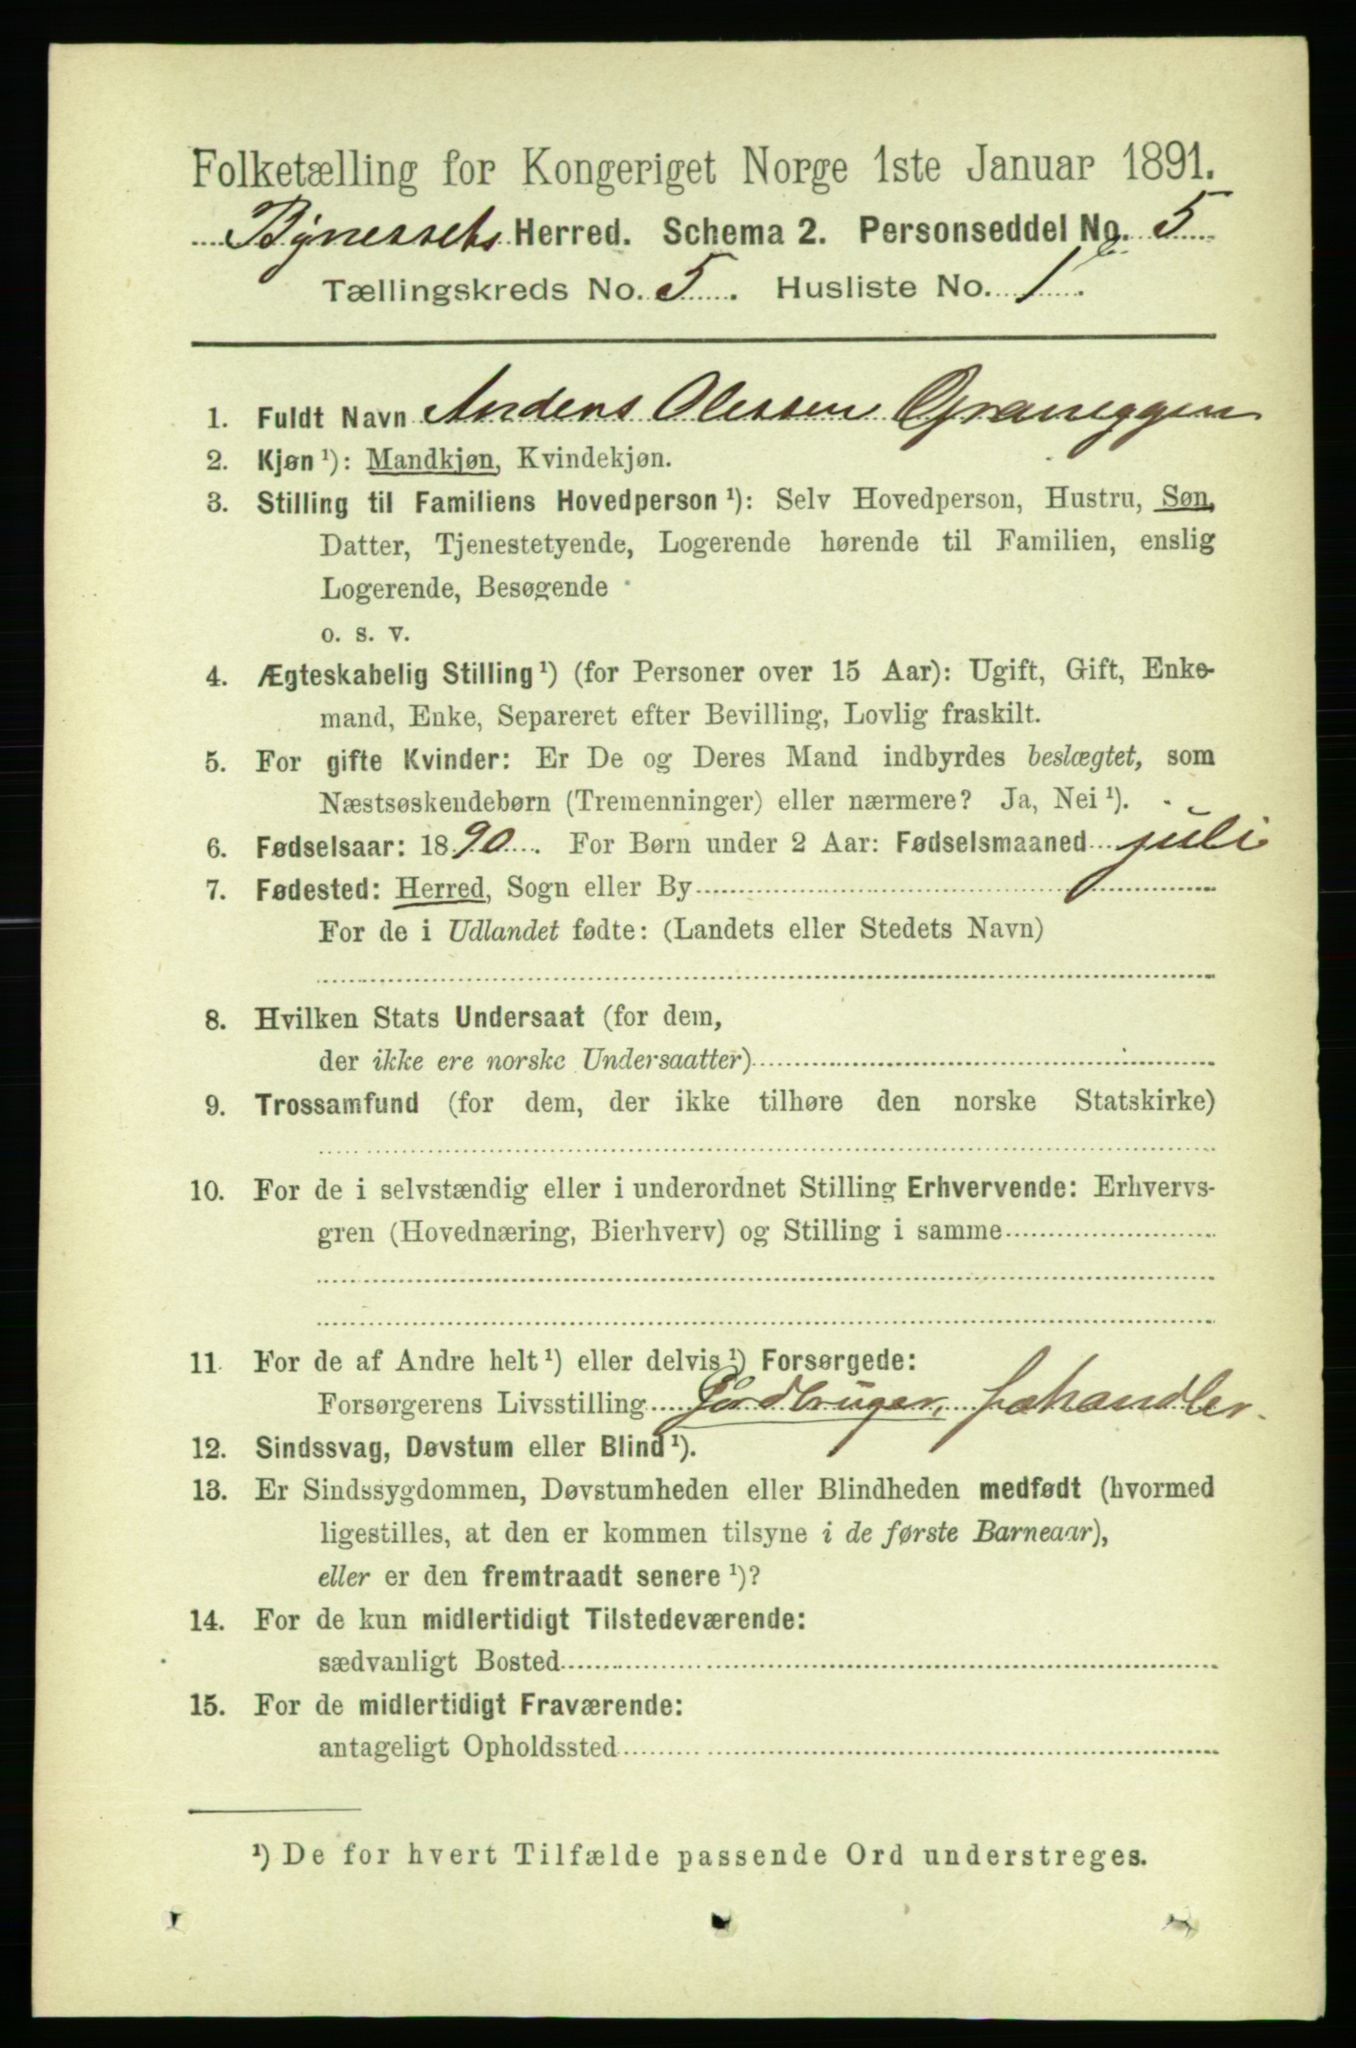 Folketælling for Kongeriget Norge 1ste Januar 1891.
Bynessets Herred. Schema 2. Personseddel No. 5
Tællingskreds No. 5. Husliste No. 1
1. Fuldt Navn Anders Olessen Graneggen
2. Kjøn ¹): Mandkjøn, Kvindekjøn.
3. Stilling til Familiens Hovedperson ¹): Selv Hovedperson, Hustru, Søn,
Datter, Tjenestetyende, Logerende hørende til Familien, enslig
Logerende, Besøgende
o. s. v.
4. Ægteskabelig Stilling ¹) (for Personer over 15 Aar): Ugift, Gift, Enke-
mand, Enke, Separeret efter Bevilling, Lovlig fraskilt.
5. For gifte Kvinder: Er De og Deres Mand indbyrdes beslægtet, som
Næstsøskendebørn (Tremenninger) eller nærmere? Ja, Nei ¹).
6. Fødselsaar: 1890. For Børn under 2 Aar: Fødselsmaaned juli
7. Fødested: Herred, Sogn eller By
For de i Udlandet fødte: (Landets eller Stedets Navn)
8. Hvilken Stats Undersaat (for dem,
der ikke ere norske Undersaatter)
9. Trossamfund (for dem, der ikke tilhøre den norske Statskirke)
10. For de i selvstændig eller i underordnet Stilling Erhvervende: Erhvervs-
gren (Hovednæring, Bierhverv) og Stilling i samme
11 For de af Andre helt ¹) eller delvis ¹) Forsørgede:
Forsørgerens Livsstilling Jordbruger, fæhandler.
12. Sindssvag, Døvstum eller Blind ¹).
13. Er Sindssygdommen, Døvstumheden eller Blindheden medfødt (hvormed
ligestilles, at den er kommen tilsyne i de første Barneaar),
eller er den fremtraadt senere ¹)?
14. For de kun midlertidigt Tilstedeværende:
sædvanligt Bosted
15. For de midlertidigt Fraværende:
antageligt Opholdssted
¹) De for hvert Tilfælde passende Ord understreges.